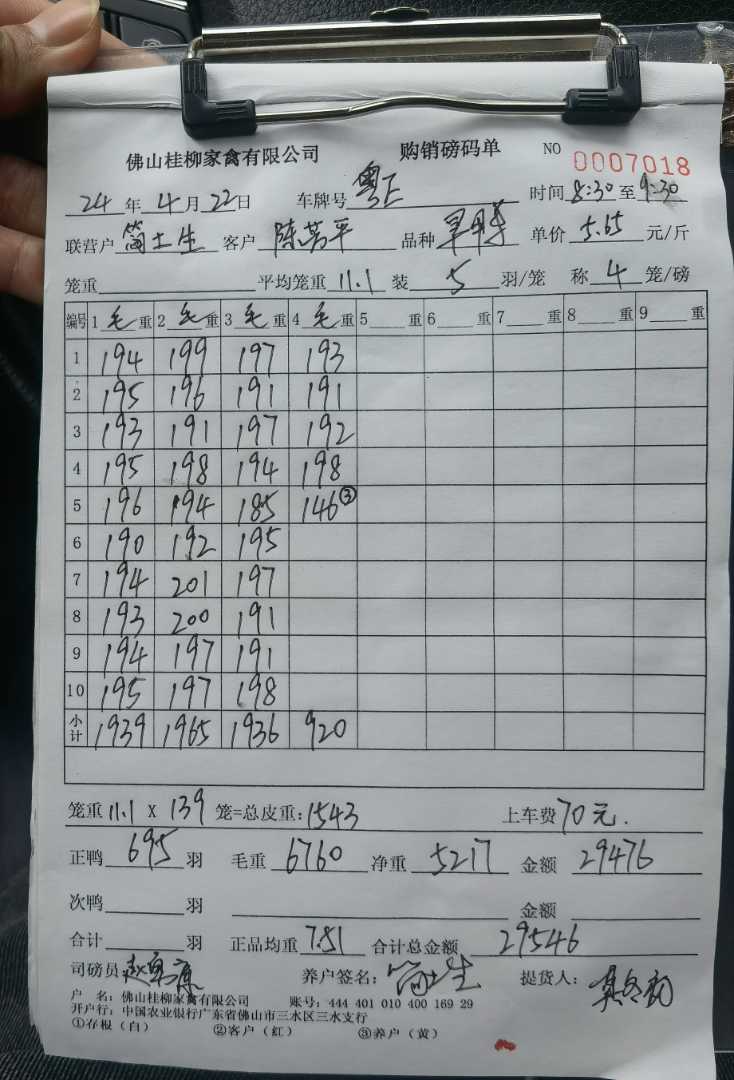 佛山桂柳家禽有限公司 购销磅码单 NO 0007018
24年4月22日 车牌号 粤E 时间8:30至9:30
联营户 客户 陈 平 品种 单价5.65元/斤
笼重 平均笼重11.1装5羽/笼 称4笼/磅
编号 1毛重 2毛重 3毛重 4毛重 5重 6重 7重 8重 9重
1 194 199 197 193
2 195 196 191 191
3 193 191 197 192
4 195 198 194 198
5 196 194 185 146③
6 190 192 195
7 194 201 197
8 193 200 191
9 194 197 191
10 195 197 198
小计 1939 1965 1936 920
笼重11.1X139笼=总皮重:1543 上车费70元.
正鸭695羽 毛重6760净重5217金额29476
次鸭羽 金额
合计羽 正品均重7.51合计总金额29546
司磅员 养户签名: 提货人:
户 名:佛山桂柳家禽有限公司 账号:444 401 010 400 169 29
开户行:中国农业银行广东省佛山市三水区三水支行
①存根(白) ②客户(红) ③养户(黄)